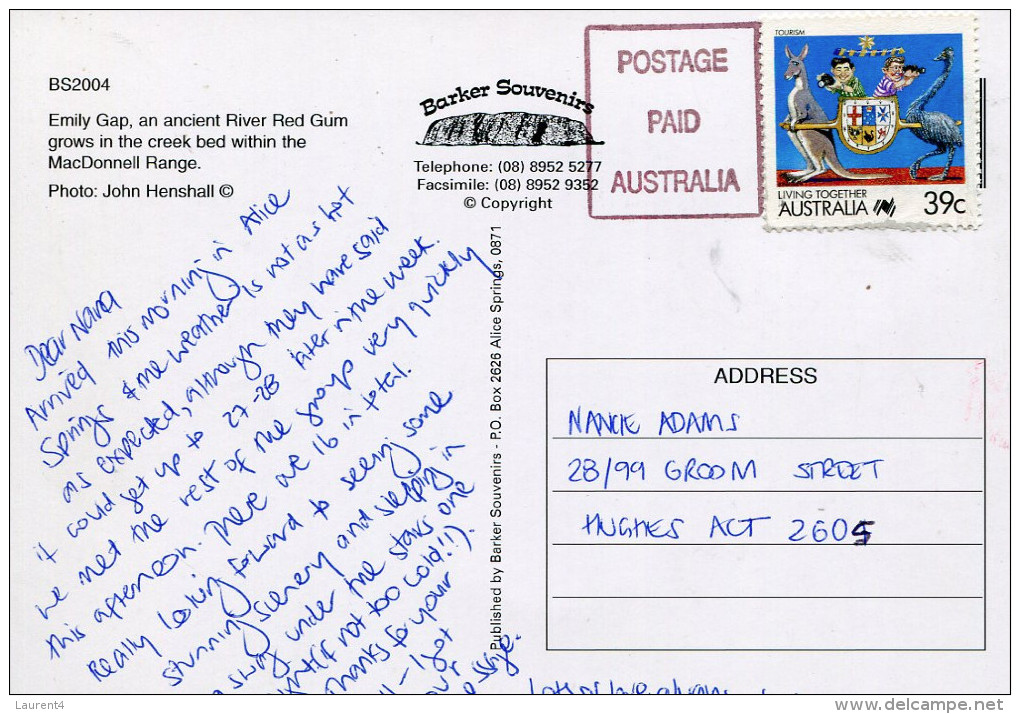 BS2004
Emily Gap, an ancient River Red Gum
grows in the creek bed within the
MacDonnell Range.
Photo: John Henshall ©
Barker Souvenirs
Telephone: (08) 8952 5277
Facsimile: (08) 8952 9352
© Copyright
POSTAGE
PAID
AUSTRALIA
TOURISM
LIVING TOGETHER
AUSTRALIA 39c
Dear Nana
Arrived this morning in Alice
Springs & the weather is not as hot
as expected, although they have said
it could get up to 27-28 later in the week.
We met the rest of the group very quickly
this afternoon. There are 16 in total.
Really looking forward to seeing some
stunning scenery and sleeping in
a swag under the stars one
night (if not too cold!!).
Thanks for your
- I got
your
Lots of love always
Published by Barker Souvenirs - P.O. Box 2626 Alice Springs, 0871
ADDRESS
NANCIE ADAMS
28/99 GROOM STREET
HUGHES ACT 2605
Laurent4
www.delcampe.net